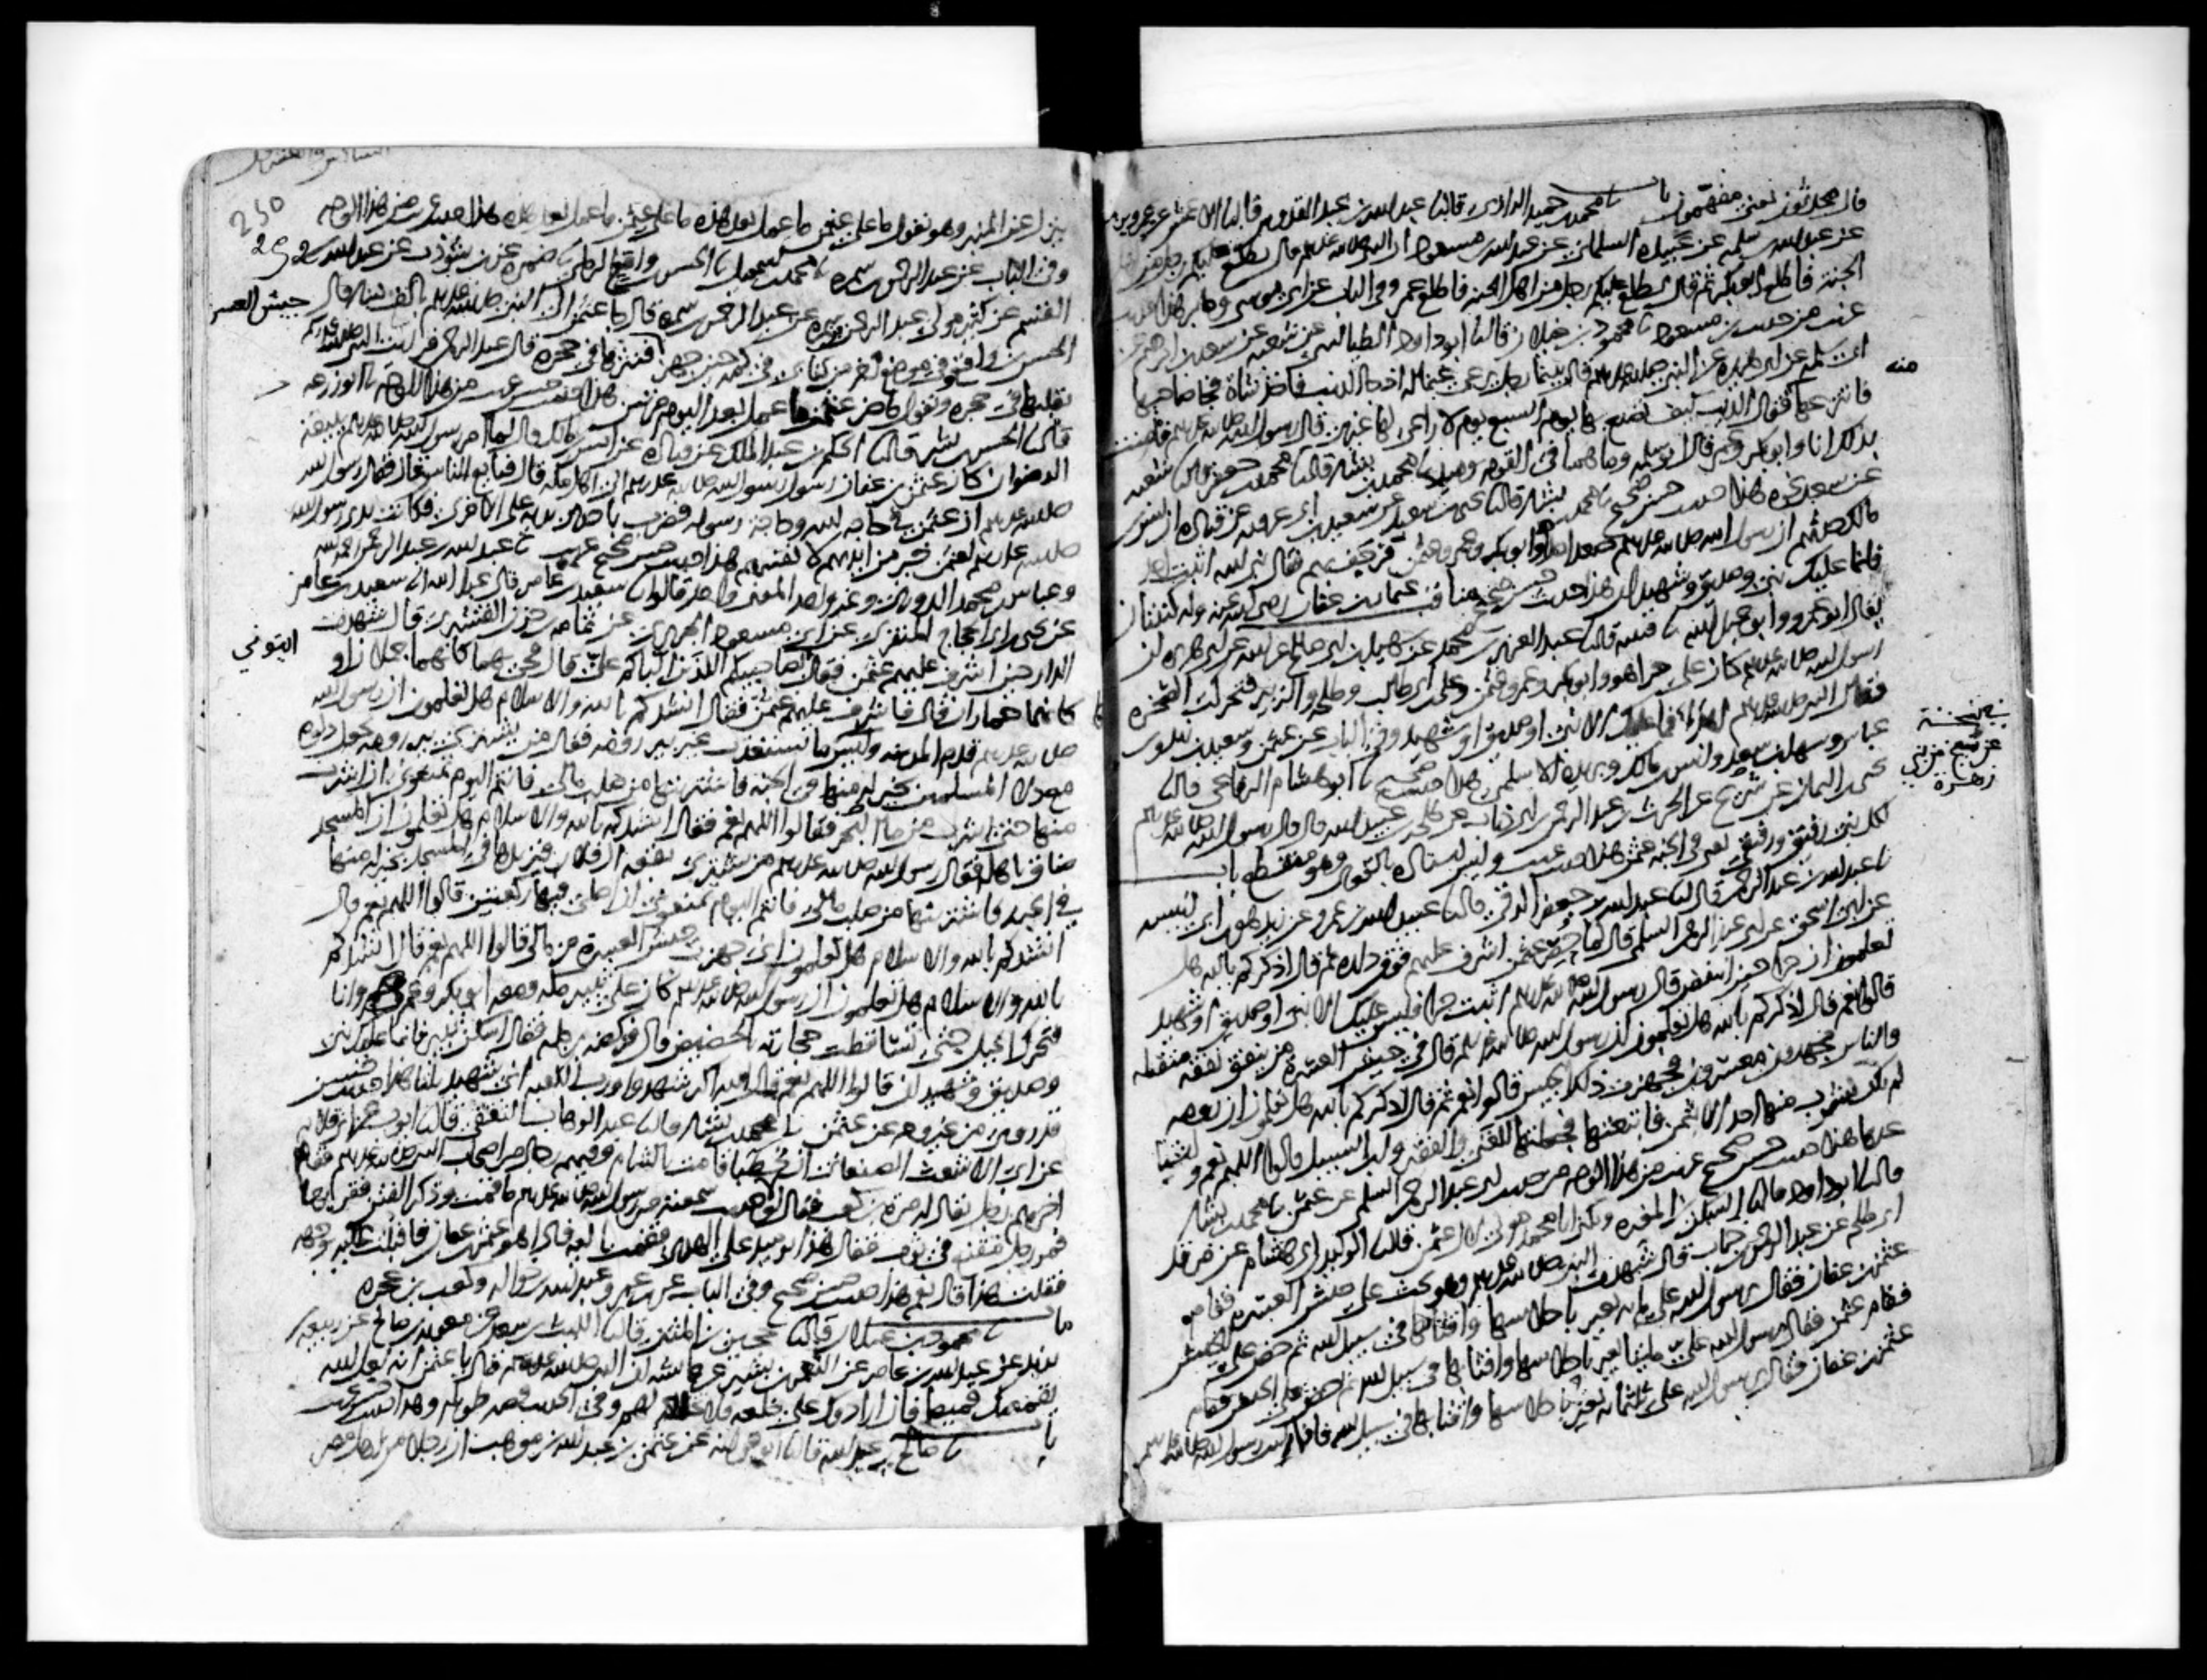 قال محدثون يعني مفهمون باب نا محمد بن حميد الرازي قال نا عبد الله بن عبد القدوس قال نا الاعمش عن عمرو بن مرة
عن عبد الله بن سلمة عن عبيدة السلماني عن عبد الله بن مسعود ان النبي صلى الله عليه وسلم قال يطلع عليكم رجل من اهل
الجنة فاطلع ابو بكر ثم قال يطلع عليكم رجل من اهل الجنة فاطلع عمر وفي الباب عن ابي موسى وجابر هذا حديث
غريب من حديث بن مسعود نا محمود بن غيلان قال نا ابو داود الطيالسي عن شعبة عن سعد بن ابرهيم عن
ابي سلمة عن ابي هريرة عن النبي صلى الله عليه وسلم قال بينما رجل يرعى غنما له اذ جا الذئب فاخذ شاة فجا صاحبها
منه
فانتزعها فقال الذئب كيف تصنع بها يوم السبع يوم لا راعي لها غيري قال رسول الله صلى الله عليه وسلم فامنت
بذلك انا وابو بكر وعمر قال ابو سلمة وما هما في القوم يوميذ نا محمد بن بشار قال نا محمد بن جعفر قال نا شعبة
عن سعد نحوه هذا حديث حسن صحيح نا محمد بن بشار قال نا يحيى بن سعيد عن سعيد بن ابي عروبة عن قتادة ان انس بن
مالك حدثهم ان رسول الله صلى الله عليه وسلم صعد احدا وابو بكر وعمر وعثمن فرجف بهم فقال نبي الله اثبت احد
فانما عليك نبي وصديق وشهيدان هذا حديث حسن صحيح مناقب عثمان بن عفان رضي الله عنه وله كنيتان
يقال ابو عمرو وابو عبد الله نا قتيبة قال نا عبد العزيز بن محمد عن سهيل بن ابي صالح عن ابيه عن ابي هريرة ان
رسول الله صلى الله عليه وسلم كان على حرا هو وابو بكر وعمر وعثمن وعلي بن ابي طالب وطلحة والزبير فتحركت الصخرة
فقال النبي صلى الله عليه وسلم اهدا فما عليك الا نبي او صديق او شهيد وفي الباب عن عثمن وسعيد بن زيد وبن
عباس وسهل بن سعد وانس بن مالك وبريدة الاسلمي هذا حديث صحيح نا ابو هشام الرفاعي قال نا
في نسخة
عن شيخ من بني
زهرة
يحيى بن اليمان عن شريح عن الحرث بن عبد الرحمن بن ابي ذباب عن طلحة بن عبيد الله قال قال رسول الله صلى الله عليه وسلم
لكل نبي رفيق ورفيقي يعني في الجنة عثمن هذا حديث غريب وليس اسناده بالقوي وهو منقطع باب
نا عبد الله بن عبد الرحمن قال نا عبد الله بن جعفر الرقي قال نا عبيد الله بن عمرو عن زيد هو بن ابي انيسة
عن ابي اسحق عن ابي عبد الرحمن السلمي قال لما حصر عثمن اشرف عليهم فوق داره ثم قال اذكركم بالله هل
تعلمون ان حرا حين انتفض قال رسول الله صلى الله عليه وسلم اثبت حرا فليس عليك الا نبي او صديق او شهيد
قالوا نعم قال اذكركم بالله هل تعلمون ان رسول الله صلى الله عليه وسلم قال في جيش العسرة من ينفق نفقة متقبلة
والناس مجهدون معسرون فجهزت ذلك الجيش قالوا نعم ثم قال اذكركم بالله هل تعلمون ان رومة
لم يكن يشرب منها احد الا بثمن فابتعتها فجعلتها للغني والفقير وابن السبيل قالوا اللهم نعم واشيا
عددها هذا حديث حسن صحيح غريب من هذا الوجه من حديث ابي عبد الرحمن السلمي عن عثمن نا محمد بن بشار
قال نا ابو داود قال نا السكن بن المغيرة ويكنى ابا محمد مولى لال عثمن قال نا الوليد بن ابي هشام عن فرقد
ابي طلحة عن عبد الرحمن بن خباب قال شهدت النبي صلى الله عليه وسلم وهو يحث على جيش العسرة فقام
عثمن بن عفان فقال يرسول الله علي ماية بعير باحلاسها واقتابها في سبيل الله ثم حض على الجيش
فقام عثمن فقال يرسول الله علي مايتا بعير باحلاسها واقتابها في سبيل الله ثم حض على الجيش فقام
عثمن بن عفان فقال يرسول الله علي ثلثماية بعير باحلاسها واقتابها في سبيل الله فانا رايت رسول الله صلى الله عليه وسلم
250
252
ينزل عن المنبر وهو يقول ما على عثمن ما عمل بعد هذه ما على عثمن ما عمل بعد هذه هذا حديث غريب من هذا الوجه
وفي الباب عن عبد الرحمن بن سمرة نا محمد بن اسمعيل نا الحسن بن واقع الرملي نا ضمرة عن بن شوذب عن عبد الله بن
القسم عن كثير مولى عبد الرحمن بن سمرة عن عبد الرحمن بن سمرة قال جا عثمن الى النبي صلى الله عليه وسلم بالف دينار قال
جيش العسرة
الحسن بن واقع وفي موضع اخر من كتابي في كمه حين جهز فنثرها في حجره قال عبد الرحمن فرايت النبي صلى الله عليه وسلم
يقلبها في حجره ويقول ما ضر عثمن ما عمل بعد اليوم مرتين هذا حديث حسن غريب من هذا الوجه نا ابو زرعة
قال نا الحسن بن بشر قال نا الحكم بن عبد الملك عن قتادة عن انس بن مالك قال لما امر رسول الله صلى الله عليه وسلم ببيعة
الرضوان كان عثمن بن عفان رسول رسول الله صلى الله عليه وسلم الى اهل مكة قال فبايع الناس قال فقال رسول الله
صلى الله عليه وسلم ان عثمن في حاجة الله وحاجة رسوله فضرب باحدى يديه على الاخرى فكانت يد رسول الله
صلى الله عليه وسلم لعثمن خير من ايديهم لانفسهم هذا حديث حسن صحيح غريب نا عبد الله بن عبد الرحمن
وعباس بن محمد الدوري وغير واحد المعنى واحد قالوا نا سعيد بن عامر قال عبد الله انا سعيد بن عامر
عن يحيى بن ابي الحجاج المنقري عن ابي مسعود الجريري عن ثمامة بن حزن القشيري قال شهدت
الدار حين اشرف عليهم عثمن فقال ايتوني بصاحبيكم اللذين الباكم علي قال فجي بهما كانهما جملان او
كانهما حماران قال فاشرف عليهم عثمن فقال انشدكم بالله والاسلام هل تعلمون ان رسول الله
صلى الله عليه وسلم قدم المدينة وليس بها ما يستعذب غير بير رومة فقال من يشتري بير رومة يجعل دلوه
مع دلا المسلمين بخير له منها في الجنة فاشتريتها من صلب مالي فانتم اليوم تمنعوني ان اشرب
منها حتى اشرب من ما البحر فقالوا اللهم نعم فقال انشدكم بالله والاسلام هل تعلمون ان المسجد
ضاق باهله فقال رسول الله صلى الله عليه وسلم من يشتري بقعة ال فلان فيزيدها في المسجد بخير له منها
في الجنة فاشتريتها من صلب مالي فانتم اليوم تمنعوني ان اصلي فيها ركعتين قالوا اللهم نعم قال
انشدكم بالله والاسلام هل تعلمون اني جهزت جيش العسرة من مالي قالوا اللهم نعم قال انشدكم
بالله والاسلام هل تعلمون ان رسول الله صلى الله عليه وسلم كان على ثبير مكة ومعه ابو بكر وعمر وانا
فتحرك الجبل حتى تساقطت حجارته بالحضيض قال فركضه برجله فقال اسكن ثبير فانما عليك نبي
وصديق وشهيدان قالوا اللهم نعم قال الله اكبر شهدوا ورب الكعبة اني شهيد ثلثا هذا حديث حسن
قد روي من غير وجه عن عثمن نا محمد بن بشار قال نا عبد الوهاب الثقفي قال نا ايوب عن ابي قلابة
عن ابي الاشعث الصنعاني ان خطبا قامت بالشام وفيهم رجال من اصحاب النبي صلى الله عليه وسلم فقام
اخرهم رجل يقال له مرة بن كعب فقال لولا حديث سمعته من رسول الله صلى الله عليه وسلم ما قمت وذكر الفتن فقربها
فمر رجل مقنع في ثوب فقال هذا يوميذ على الهدى فقمت اليه فاذا هو عثمن بن عفان فاقبلت عليه بوجهه
فقلت هذا قال نعم هذا حديث حسن صحيح وفي الباب عن بن عمر وعبد الله بن حوالة وكعب بن عجرة
باب نا محمود بن غيلان قال نا حجين بن المثنى قال نا الليث بن سعد عن معوية بن صالح عن ربيعة بن
يزيد عن عبد الله بن عامر عن النعمن بن بشير عن عايشة ان النبي صلى الله عليه وسلم قال يا عثمن انه لعل الله
يقمصك قميصا فان ارادوك على خلعه فلا تخلعه لهم وفي الحديث قصة طويلة وهذا حديث حسن غريب
باب نا صالح بن عبد الله قال نا ابو عوانة عن عثمن بن عبد الله بن موهب ان رجلا من اهل مصر